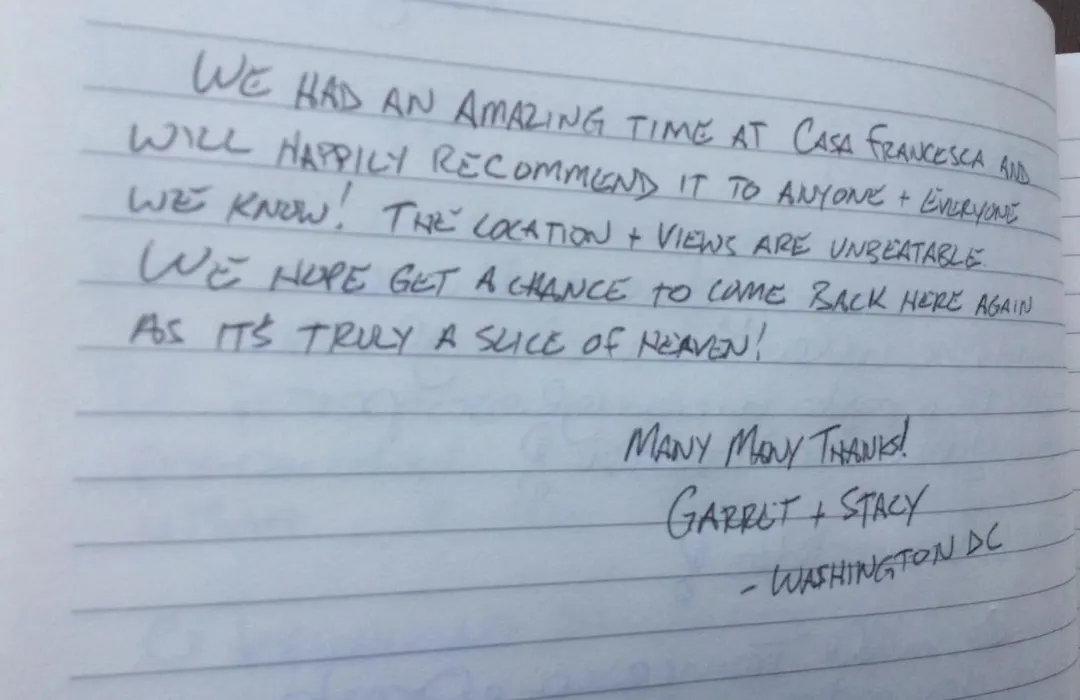 WE HAD AN AMAZING TIME AT CASA FRANCESCA AND
WILL HAPPILY RECOMMEND IT TO ANYONE + EVERYONE
WE KNOW! THE LOCATION + VIEWS ARE UNBEATABLE.
WE HOPE GET A CHANCE TO COME BACK HERE AGAIN
AS IT'S TRULY A SLICE OF HEAVEN!
MANY MANY THANKS!
GARRET + STACY
- WASHINGTON DC